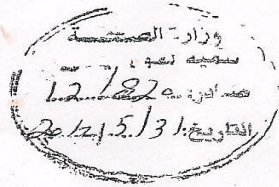 وزارة الصحة
صادرة: 12/820
التاريخ: 2012/5/31